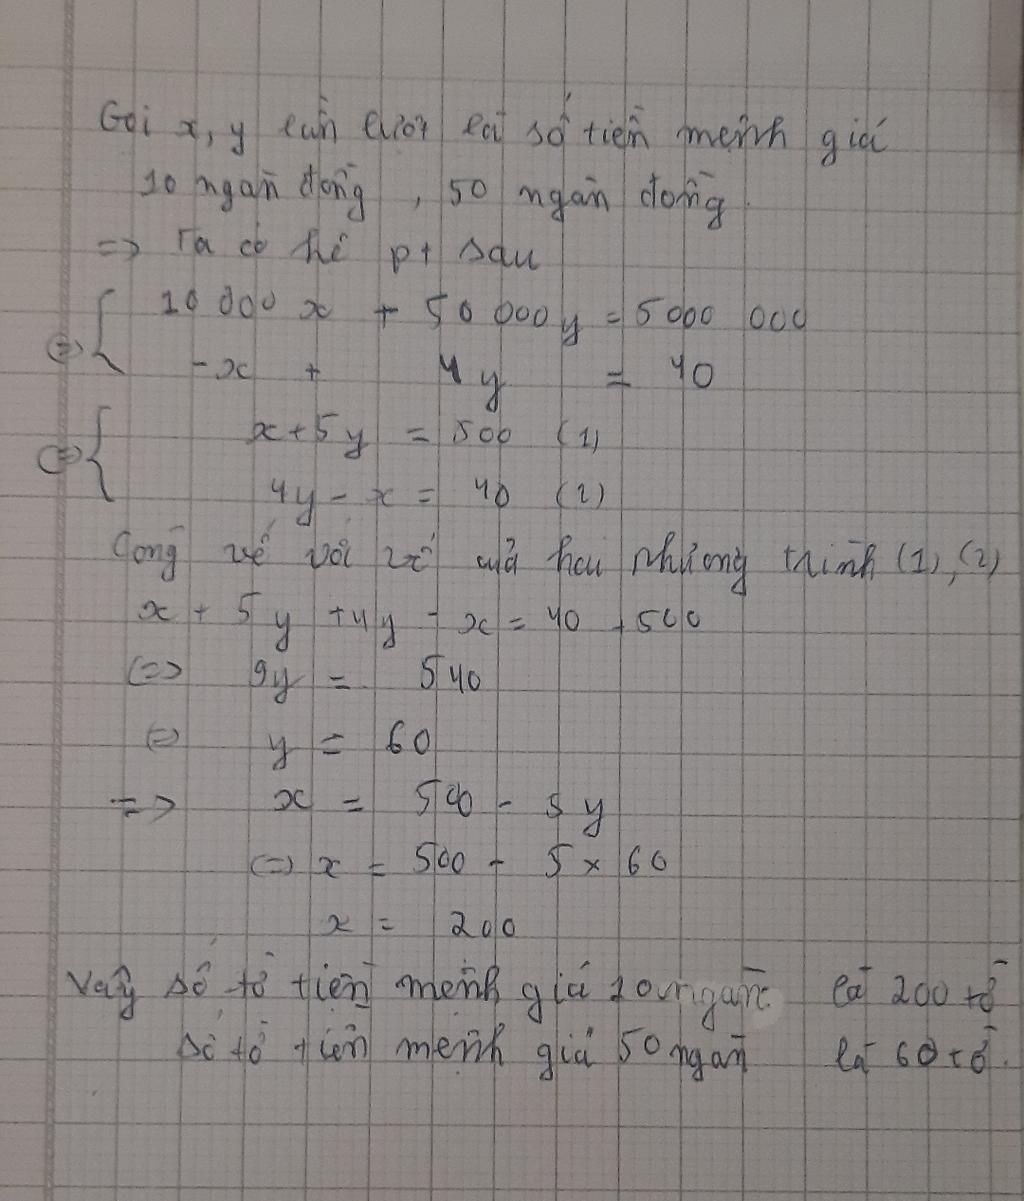 Gọi x, y lần lượt là số tiền mệnh giá
10 ngàn đồng, 50 ngàn đồng.
=> Ta có hệ pt sau
<=> { 10 000 x + 50 000 y = 5000 000
-x + 4y = 40
<=> { x + 5y = 500 (1)
4y - x = 40 (2)
Cộng vế với vế của hai phương trình (1), (2)
x + 5y + 4y - x = 40 + 500
<=> 9y = 540
<=> y = 60
=> x = 500 - 5y
<=> x = 500 - 5 x 60
x = 200
Vậy số tờ tiền mệnh giá 10 ngàn là 200 tờ
Số tờ tiền mệnh giá 50 ngàn là 60 tờ.